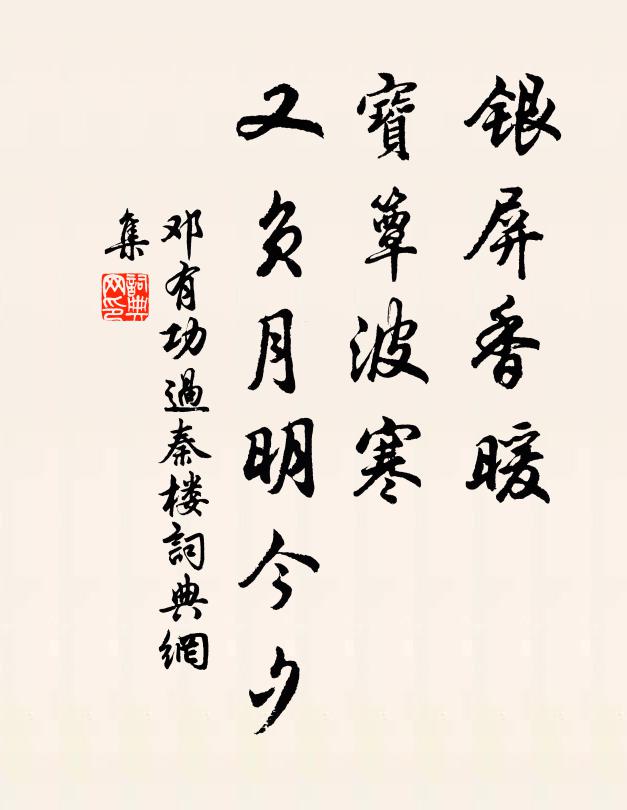 银屏香暖
寶簟波寒
又负月明今夕
邓有功過秦楼詞典網
集
詞典网印